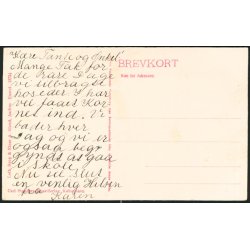 Kære Tante og Onkel
Mange Tak for
de Rare Dage
vi tilbragte
hos eder. I har
vel faaet Kor-
nes ind. Vi
bader hver
Dag og vi er
ogsaa beg
yndt at gaa
i Skole.
Nu vil slut
en venlig Hilsen
fra Karen
BREVKORT
Kun for Adressen.